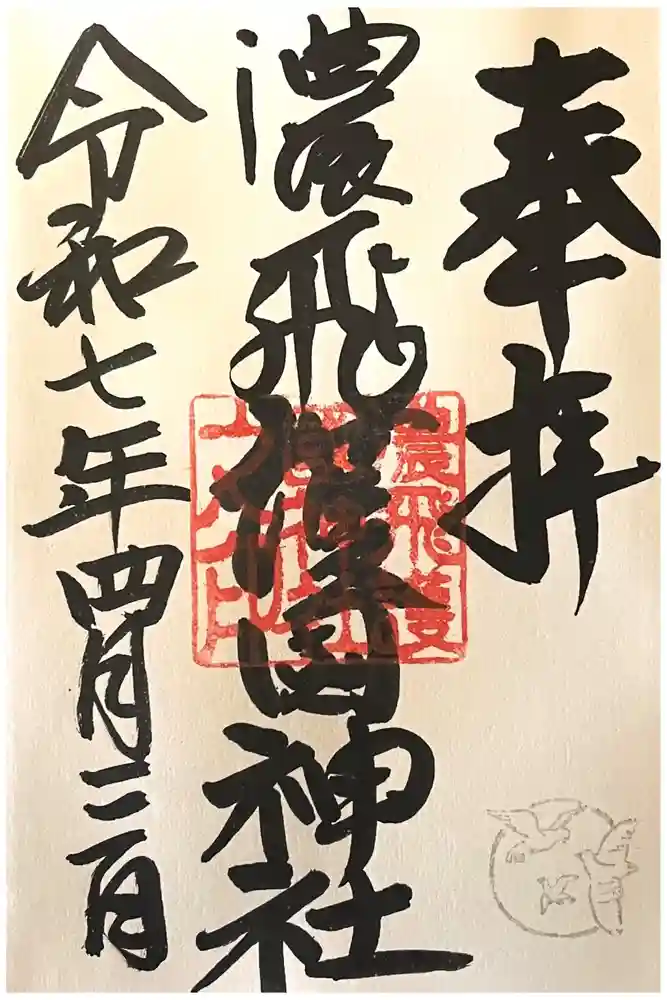 奉拝
濃飛護國神社
令和七年四月三日
濃飛護
國神社
之印